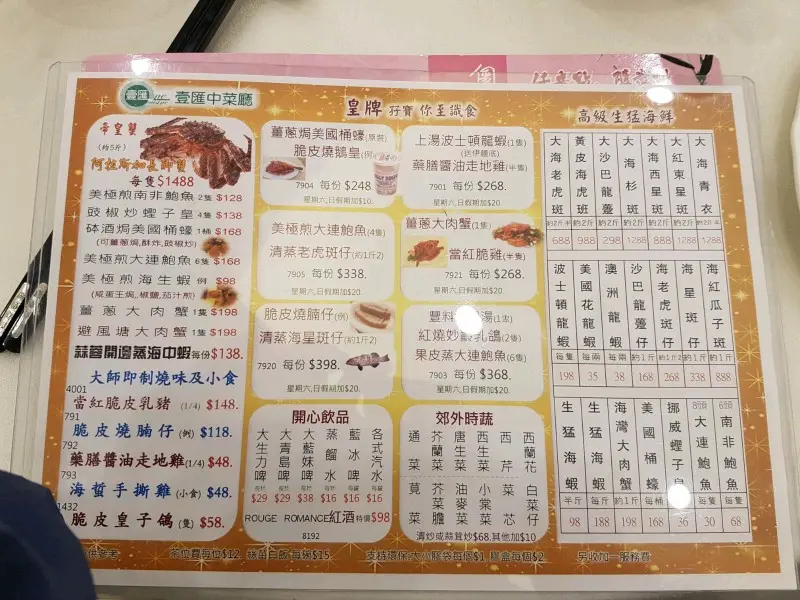 壹匯中菜廳
帝皇蟹
(約5斤)
阿拉斯加皇帝蟹
每隻$1488
美極煎南非鮑魚 2隻 $128
豉椒炒蟶子皇 4隻 $138
砵酒焗美國桶蠔 1桶 $168
(可薑蔥焗,酥炸,豉椒炒)
美極煎大連鮑魚 6隻 $168
美極煎海生蝦 例 $98
(咸蛋王焗,椒鹽,茄汁煎)
薑蔥大肉蟹 1隻 $198
避風塘大肉蟹 1隻 $198
蒜蓉開邊蒸海中蝦 每份 $138.
大師即制燒味及小食
4001
當紅脆皮乳豬 (1/4) $148.
791
脆皮燒腩仔 (例) $118.
792
藥膳醬油走地雞 (1/4) $48.
793
海蜇手撕雞 (小食) $48.
1432
脆皮皇子鴿 (隻) $58.
皇牌 孖寶 你至識食
薑蔥焗美國桶蠔(原裝)
脆皮燒鵝皇(例)
7904 每份 $248.
星期六,日假期加$10.
上湯波士頓龍蝦(1隻)
(送伊麵底)
藥膳醬油走地雞(半隻)
7901 每份 $268.
星期六,日假期加$20.
美極煎大連鮑魚(4隻)
清蒸老虎斑仔(約1斤2)
7905 每份 $338.
星期六,日假期加$20.
薑蔥大肉蟹(1隻)
當紅脆雞(半隻)
7921 每份 $268.
星期六,日假期加$20.
脆皮燒腩仔(例)
清蒸海星斑仔(約1斤2)
7920 每份 $398.
星期六,日假期加$20.
豐料 湯(1隻)
紅燒妙 乳鴿(2隻)
果皮蒸大連鮑魚(6隻)
7903 每份 $368.
星期六,日假期加$20.
開心飲品
大生力啤 每枝 $29
大青島啤 每枝 $29
大藍妹啤 每枝 $38
蒸餾水 每樽 $16
藍冰啤 每罐 $16
各式汽水 每罐 $16
ROUGE ROMANCE紅酒 特價$98
8192
郊外時蔬
通菜 芥蘭 唐生菜 西生菜 西芹 西蘭花
莧菜 芥菜膽 油麥菜 小棠菜 菜芯 白菜仔
清炒或蒜茸炒$68,其他加$10
高級生猛海鮮
大海老虎斑 約2斤半 688
黃皮海老虎斑 約2斤 988
大沙巴龍躉 約2斤 298
大海杉斑 約1斤 1288
大海西星斑 約2斤 888
大紅東星斑 約1斤 1288
大海青衣 約2斤半 1288
波士頓龍蝦 每隻 198
美國花龍蝦 每兩 35
澳洲龍蝦 每兩 38
沙巴龍躉仔 約1斤 168
海老虎斑仔 約1斤 268
海星斑仔 約1斤 338
海紅瓜子斑 約1斤 888
生猛海蝦 半斤 98
生猛海蝦 每斤 188
海灣大肉蟹 約1斤 198
美國桶蠔 每桶 168
挪威蟶子皇 每隻 36
8頭 大連鮑魚 每隻 30
6頭 南非鮑魚 每隻 68
供參考 茶位費每位$12 絲苗白飯 每碗$15 支持環保,大小膠袋每個$1 膠盒每個$2 另收加一服務費